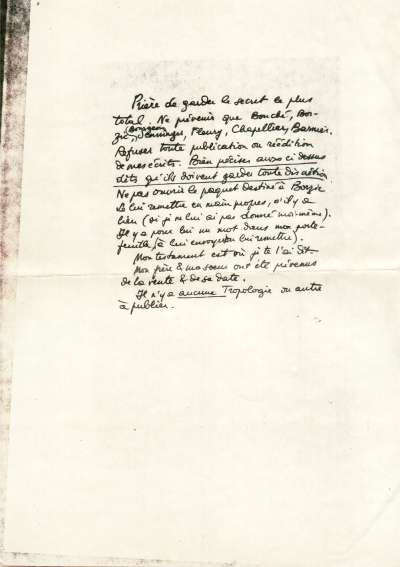 Prière de garder le secret le plus
total. Ne prévenir que Bouché, Bor-
gie, Bourgeois, Jenninger, Fleury, Chapellier, Barnier.
Refuser toute publication ou réédition
de mes écrits. Bien préciser aux ci dessus
dits qu'ils doivent garder toute discrétion
Ne pas ouvrir le paquet destiné à Borgie
Le lui remettre en main propre, s'il y a
lieu (si je ne lui ai pas donné moi-même).
Il y a pour lui un mot dans mon porte-
feuille (à lui envoyer ou lui remettre).
Mon testament est où je te l'ai dit
Mon père & ma sœur ont été prévenus
de la vente & de sa date.
Il n'y a aucune Tropologie ou autre
à publier.